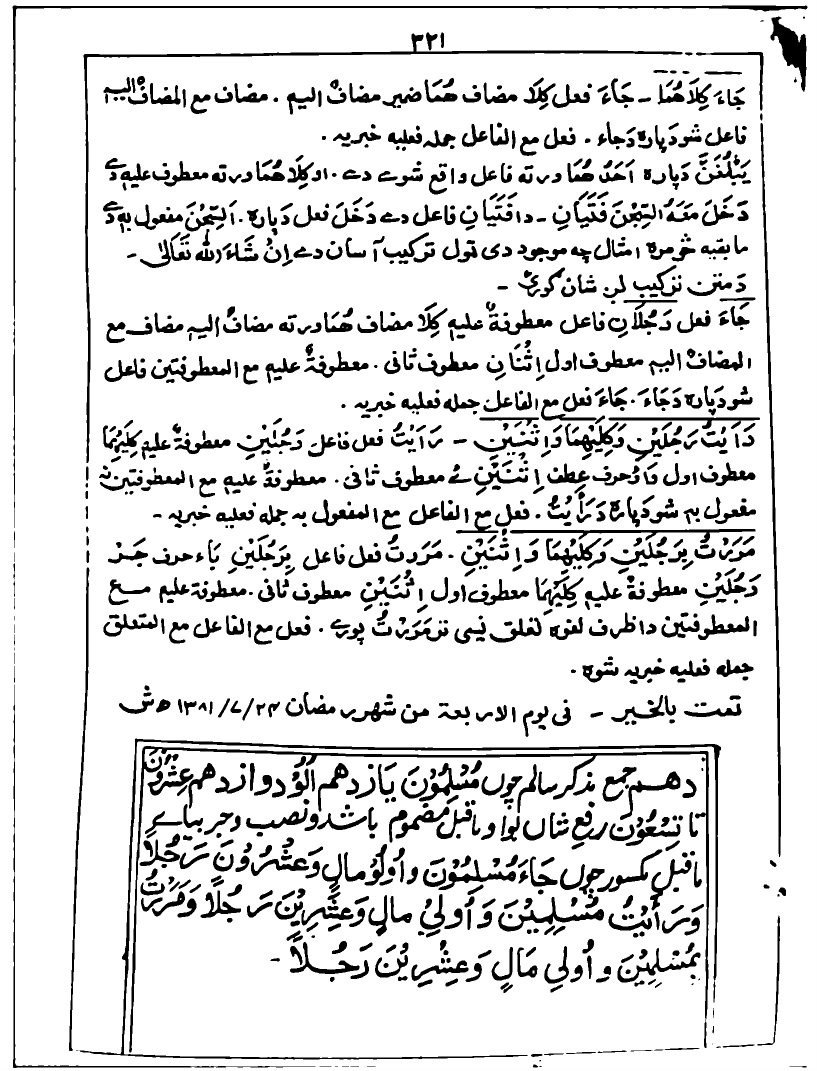 ۳۲۱
جَاءَ كِلَاهُمَا – جَاءَ فعل كِلَا مضاف هُمَا ضمیر مضافْ الیہ . مضاف مع المضافْ الیہ
فاعل شو دپارہ دَجاء . فعل مع الفاعل جملہ فعلیہ خبریہ .
یَبْلُغَنَّ دَپارہ اَحَدُ هُمَا ورتہ فاعل واقع شوے دے . او كِلَا هُمَا ورتہ معطوف علیہ دے
دَخَلَ مَعَهُ السِّجْنَ فَتَيَانِ – دا فَتَيَانِ فاعل دے دَخَلَ فعل دَپارہ . اَلسِّجْنَ مفعول بہ دے
ما بقیہ څومرہ امثال چہ موجود دی ټول ترکیب آسان دے اِنْ شَاءَ اللّٰه تَعَالٰی –
دَ متن ترکیب لږ شان ګورئ –
جَاءَ فعل رَجُلَانِ فاعل معطوفۂ علیہ كِلَا مضاف هُمَا ورتہ مضافْ الیہ مضاف مع
المضافْ الیہ معطوف اول اِثْنَانِ معطوف ثانی . معطوفۂ علیہ مع المعطوفتین فاعل
شو دَپارہ دَجَاءَ . جَاءَ فعل مع الفاعل جملہ فعلیہ خبریہ .
رَاَيْتُ رَجُلَيْنِ وَكِلَيْهِمَا وَاثْنَيْنِ – رَاَيْتُ فعل فاعل رَجُلَيْنِ معطوفۂ علیہ كِلَيْهِمَا
معطوف اول وَاوْ حرف عطف اِثْنَيْنِ ئے معطوف ثانی . معطوفۂ علیہ مع المعطوفتین نہ
مفعول بہ شو دپارہ دَ رَأَيْتُ . فعل مع الفاعل مع المفعول بہ جملہ فعلیہ خبریہ –
مَرَرْتُ بِرَجُلَيْنِ وَكِلَيْهِمَا وَاثْنَيْنِ . مَرَرتُ فعل فاعل بِرَجُلَيْنِ بَاء حرف جَر
رَجُلَيْنِ معطوفۂ علیہ كِلَيْهِمَا معطوف اول اِثْنَيْنِ معطوف ثانی . معطوفۃ علیہ مع
المعطوفتین دا ظرف لغوہ تعلق نیسی تر مَرَرْتُ پورے . فعل مع الفاعل مع المتعلق
جملہ فعلیہ خبریہ شوہ .
تمت بالخیر – فی یوم الاربعۃ من شھر رمضان ۱۳۸۱/۷/۲۴ ھ ش
دهم جمع مذكر سالم چوں مُسْلِمُوْنَ یازدهم اُلُوْ دوازدهم عِشْرُوْنَ
تا تِسْعُوْنَ رفعِ شاں بواو ماقبل مضموم باشد و نصب و جر بیاءِ
ماقبل مکسور چوں جَاءَ مُسْلِمُوْنَ و اُولُوْ مَالٍ وَعِشْرُوْنَ رَجُلًا
وَرَأَيْتُ مُسْلِمِيْنَ وَ اُولِيْ مَالٍ وَعِشْرِيْنَ رَجُلًا وَمَرَرْتُ
بِمُسْلِمِيْنَ و اُولِي مَالٍ وَعِشْرِيْنَ رَجُلًا –